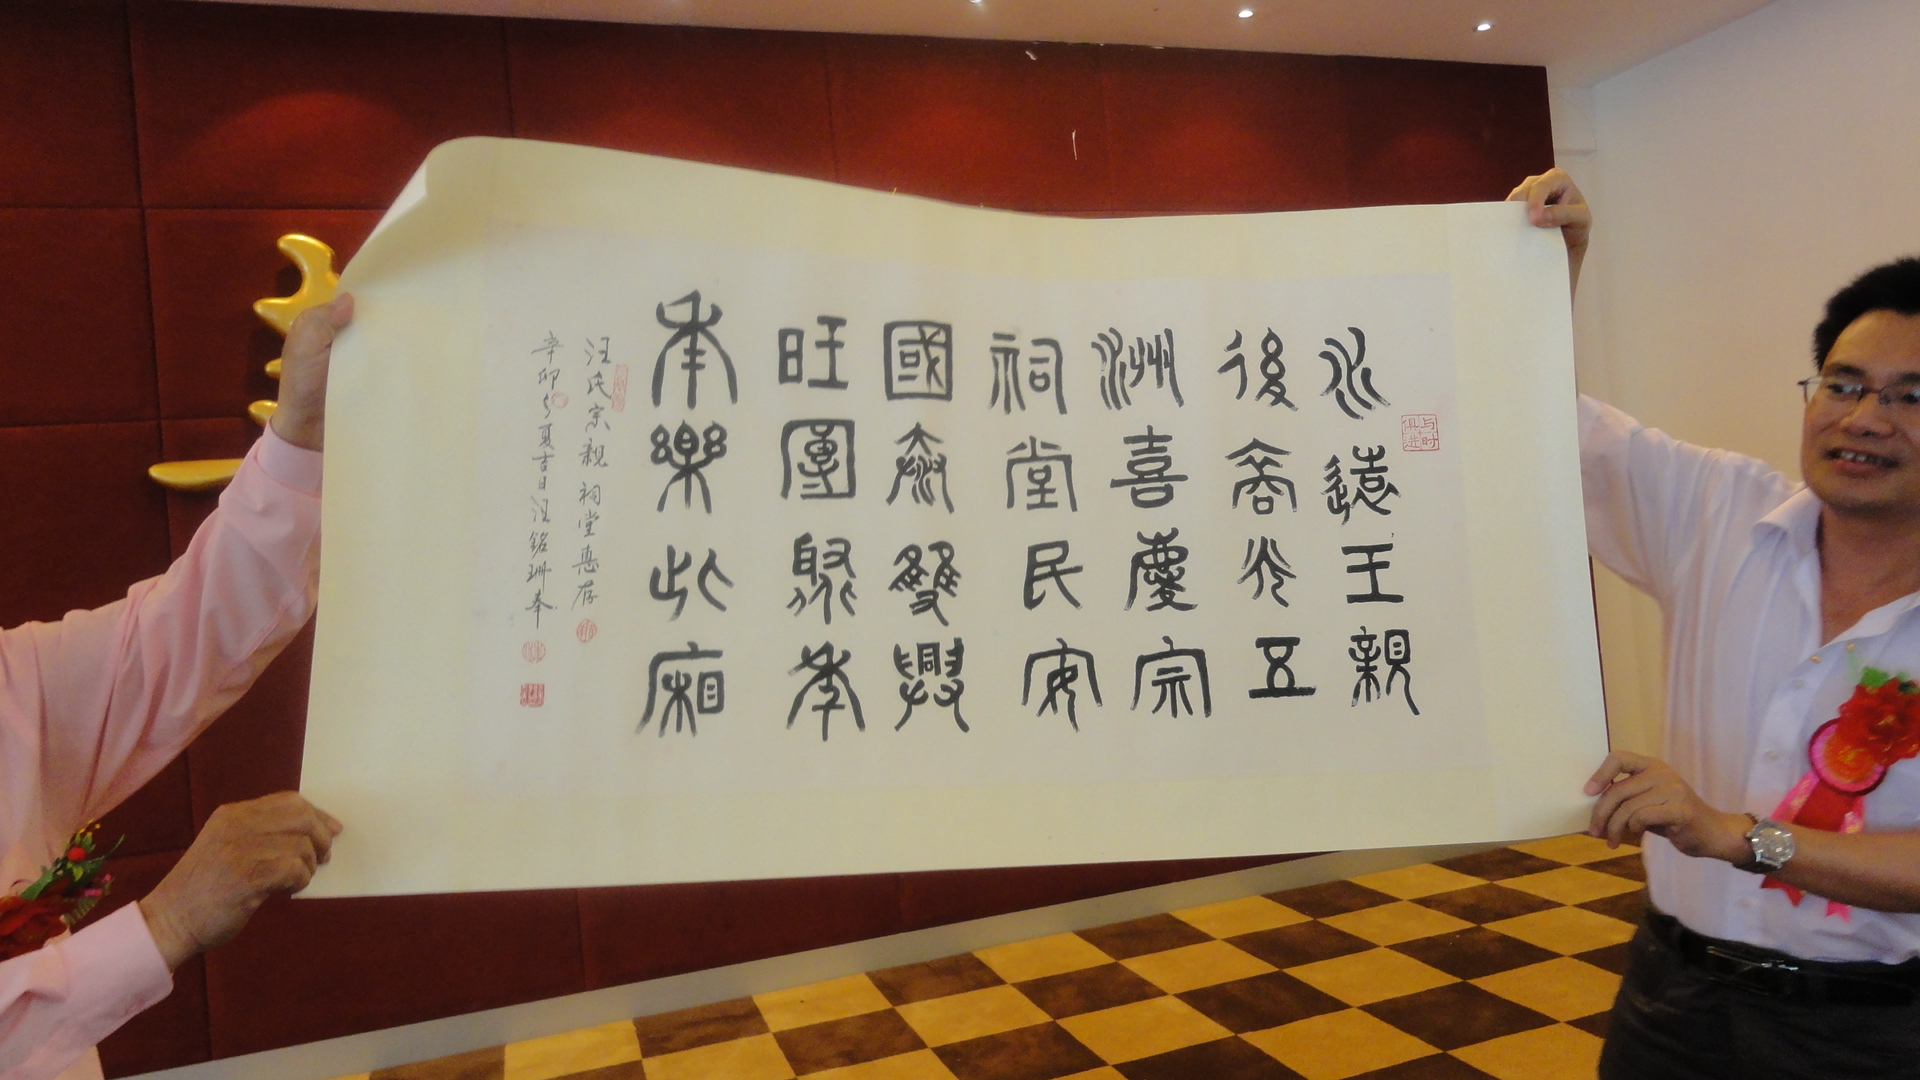 与时俱进
永遠王親
後裔光五
洲喜慶宗
祠堂民安
國泰雙興
旺團聚孝
奉樂此廂
汪氏宗親祠堂惠存
辛卯夏吉日汪銘珊奉